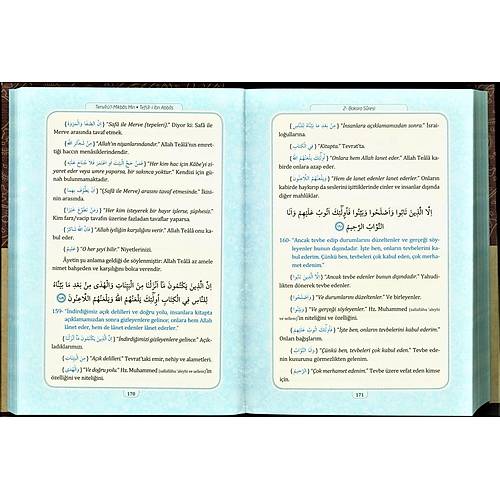 Tenvîrü'l-Mikbâs Min • Tefsîr-i İbn Abbâs
﴾ اِنَّ الصَّفَا وَالْمَرْوَةَ ﴿ "Safâ ile Merve (tepeleri)." Diyor ki: Safâ ile
Merve arasında tavaf etmek.
﴾ مِنْ شَعَٓائِرِ اللّٰهِ ﴿ "Allah'ın nişanlarındandır." Allah Teâlâ'nın emret-
tiği haccın menâsiklerindendir.
﴾ فَمَنْ حَجَّ الْبَيْتَ اَوِ اعْتَمَرَ فَلَا جُنَاحَ عَلَيْهِ ﴿ "Her kim hac için Kâbe'yi zi-
yaret eder veya umre yaparsa, bir sakınca yoktur." Kendisi için gü-
nah bulunmamaktadır.
﴾ اَنْ يَطَّوَّفَ بِهِمَا ﴿ "(Safâ ile Merve) arasını tavaf etmesinde." İkisi-
nin arasında.
﴾ وَمَنْ تَطَوَّعَ خَيْرًا ﴿ "Her kim isteyerek bir hayır işlerse, şüphesiz."
Kim farz/vacip tavafın üzerine fazladan tavaflar yaparsa.
﴾ فَاِنَّ اللّٰهَ شَاكِرٌ ﴿ "Allah iyiliğin karşılığını verir." Allah Teâlâ onu ka-
bul eder.
﴾ عَلِيمٌ ﴿ "O her şeyi bilir." Niyetlerinizi.
Âyetin şu anlama geldiği de söylenmiştir: Allah Teâlâ az amele
nimet bahşeden ve karşılığını bolca verendir.
اِنَّ الَّذِينَ يَكْتُمُونَ مَٓا اَنْزَلْنَا مِنَ الْبَيِّنَاتِ وَالْهُدٰى مِنْ بَعْدِ مَا بَيَّنَّاهُ
لِلنَّاسِ فِي الْكِتَابِ اُولٰٓئِكَ يَلْعَنُهُمُ اللّٰهُ وَيَلْعَنُهُمُ اللَّاعِنُونَ ﴿١٥٩﴾
159- "İndirdiğimiz açık delilleri ve doğru yolu, insanlara kitapta
açıklamamızdan sonra gizleyenler var ya, onlara hem Allah
lânet eder, hem de lânet edenler lânet ederler."
﴾ اِنَّ الَّذِينَ يَكْتُمُونَ مَٓا اَنْزَلْنَا ﴿ "İndirdiğimizi gizleyenlere gelince." Açık-
ladıklarımızı.
﴾ مِنَ الْبَيِّنَاتِ ﴿ "Açık delilleri." Tevrat'taki emir, nehiy ve alametleri.
﴾ وَالْهُدٰى ﴿ "Ve doğru yolu." Hz. Muhammed (sallallâhu 'aleyhi ve sellem)'in
özelliğini ve niteliğini.
170
2- Bakara Sûresi
﴾ مِنْ بَعْدِ مَا بَيَّنَّاهُ لِلنَّاسِ ﴿ "İnsanlara açıklamamızdan sonra." İsrai-
loğullarına.
﴾ فِي الْكِتَابِ ﴿ "Kitapta." Tevrat'ta.
﴾ اُولٰٓئِكَ يَلْعَنُهُمُ اللّٰهُ ﴿ "Onlara hem Allah lanet eder." Allah Teâlâ ka-
birde onlara azap eder.
﴾ وَيَلْعَنُهُمُ اللَّاعِنُونَ ﴿ "Hem de lanet edenler lanet ederler." Onların
kabirde haykırıp da seslerini işittiklerinde cinler ve insanlar dışında
diğer mahlûklar.
اِلَّا الَّذِينَ تَابُوا وَاَصْلَحُوا وَبَيَّنُوا فَاُولٰٓئِكَ اَتُوبُ عَلَيْهِمْ وَاَنَا
التَّوَّابُ الرَّحِيمُ ﴿١٦٠﴾
160- "Ancak tevbe edip durumlarını düzeltenler ve gerçeği söy-
leyenler bunun dışındadır. İşte ben, onların tevbelerini ka-
bul ederim. Çünkü ben, tevbeleri çok kabul eden, çok mer-
hamet edenim."
﴾ اِلَّا الَّذِينَ تَابُوا ﴿ "Ancak tevbe edenler bunun dışındadır." Yahudi-
likten dönerek tevbe edenler.
﴾ وَاَصْلَحُوا ﴿ "Ve durumlarını düzeltenler." Ve birleyenler.
﴾ وَبَيَّنُوا ﴿ "Ve gerçeği söyleyenler." Hz. Muhammed (sallallâhu 'aleyhi
ve sellem)'in niteliğini ve özelliğini.
﴾ فَاُولٰٓئِكَ اَتُوبُ عَلَيْهِمْ ﴿ "İşte ben, onların tevbelerini kabul ederim."
Onları bağışlarım.
﴾ وَاَنَا التَّوَّابُ ﴿ "Çünkü ben, tevbeleri çok kabul eden." Tevbe ede-
nin kusurunu görmezlikten gelenim.
﴾ الرَّحِيمُ ﴿ "Çok merhamet edenim." Tevbe üzere vefat eden kimse
için.
171